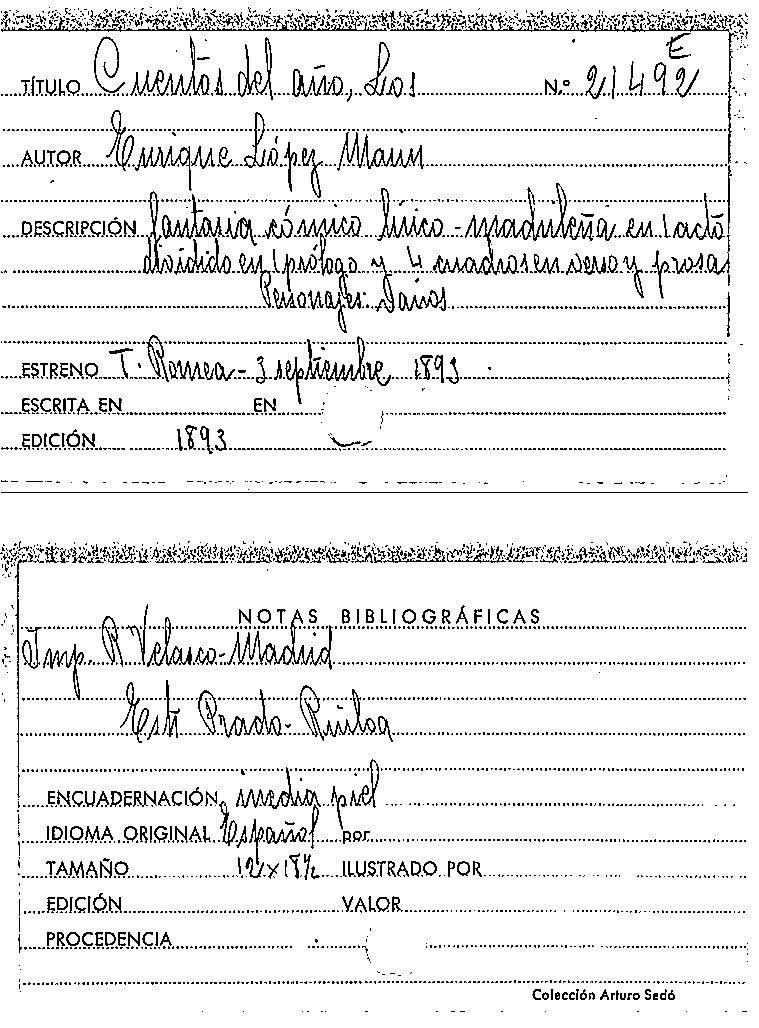 E
TÍTULO Cuentos del año, Los N.º 21492
AUTOR Enrique López Marín
DESCRIPCIÓN fantasia cómico lírico-madrileña en 1 acto
dividido en 1 prólogo y 4 cuadros en verso y prosa
Personajes: Varios
ESTRENO T. Romea - 3 septiembre 1893
ESCRITA EN EN
EDICIÓN 1893
NOTAS BIBLIOGRÁFICAS
Imp. R Velasco - Madrid
Prado-
ENCUADERNACIÓN media piel
IDIOMA ORIGINAL Español por
TAMAÑO 12 x 18½ ILUSTRADO POR
EDICIÓN VALOR
PROCEDENCIA
Colección Arturo Sedó